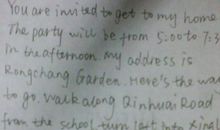 You are invited to get to my home
The party will be from 5:00 to 7:3
in the afternoon. My address is
Rongchang Garden. Here's the wa
to go. Walk along Qinhuai Road
from the school turn left into Xingl